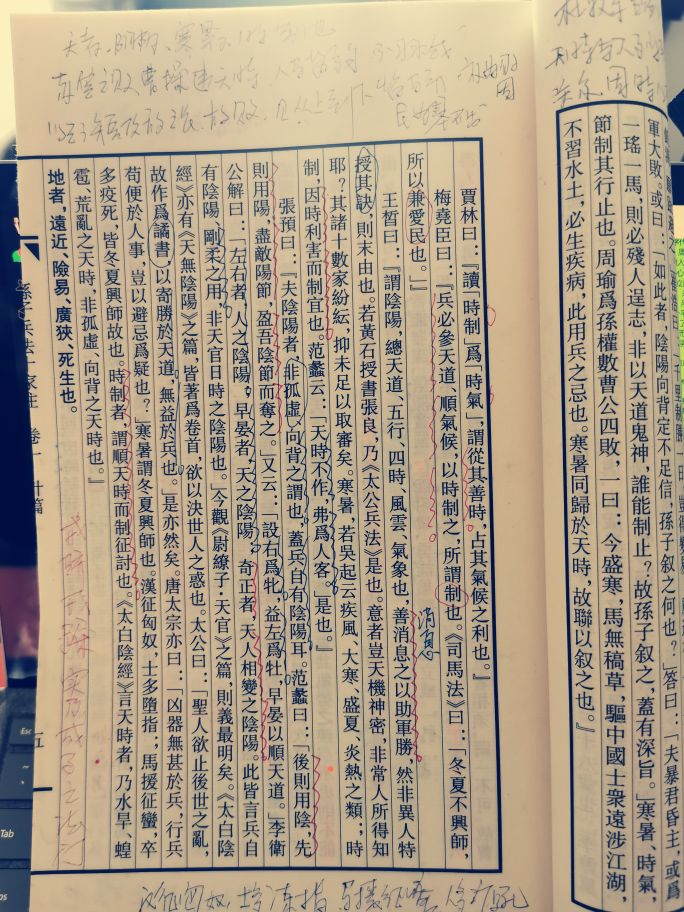 軍大敗。或曰：「如此者，陰陽向背定不足信，孫子叙之何也？」答曰：「夫暴君昏主，或爲
一瑤一馬，則必殘人逞志，非以天道鬼神，誰能制止？故孫子叙之，蓋有深旨。」寒暑、時氣，
節制其行止也。周瑜爲孫權數曹公四敗，一曰：今盛寒，馬無稿草，驅中國士衆遠涉江湖，
不習水土，必生疾病，此用兵之忌也。寒暑同歸於天時，故聯以叙之也。』
賈林曰：『讀「時制」爲「時氣」，謂從其善時，占其氣候之利也。』
梅堯臣曰：『兵必參天道、順氣候，以時制之，所謂制也。《司馬法》曰：「冬夏不興師，
所以兼愛民也。」』
王晳曰：『謂陰陽，總天道、五行、四時、風雲、氣象也，善消息之以助軍勝，然非異人特
授其訣，則末由也。若黃石授書張良，乃《太公兵法》是也。意者豈天機神密，非常人所得知
耶？其諸十數家紛紜，抑未足以取審矣。寒暑，若吳起云疾風、大寒、盛夏、炎熱之類；時
制，因時利害而制宜也。范蠡云：「天時不作，弗爲人客。」是也。』
張預曰：『夫陰陽者，非孤虛、向背之謂也。蓋兵自有陰陽耳。范蠡曰：「後則用陰，先
則用陽；盡敵陽節，盈吾陰節而奪之。」又云：「設右爲牝，益左爲牡，早晏以順天道。」李衛
公解曰：「左右者，人之陰陽；早晏者，天之陰陽；奇正者，天人相變之陰陽。」此皆言兵自
有陰陽剛柔之用，非天官日時之陰陽也。今觀《尉繚子·天官》之篇，則義最明矣。《太白陰
經》亦有《天無陰陽》之篇，皆著爲卷首，欲以決世人之惑也。太公曰：「聖人欲止後世之亂，
故作爲譎書，以寄勝於天道，無益於兵也。」是亦然矣。唐太宗亦曰：「凶器無甚於兵，行兵
苟便於人事，豈以避忌爲疑也？」寒暑謂冬夏興師也。漢征匈奴，士多墮指；馬援征蠻，卒
多疫死，皆冬夏興師故也。時制者，謂順天時而制征討也。《太白陰經》言天時者，乃水旱、蝗
雹、荒亂之天時，非孤虛、向背之天時也。』
地者，遠近、險易、廣狹、死生也。
孫子兵法十一家注 卷一 計篇
五
消息
Esc
Tab